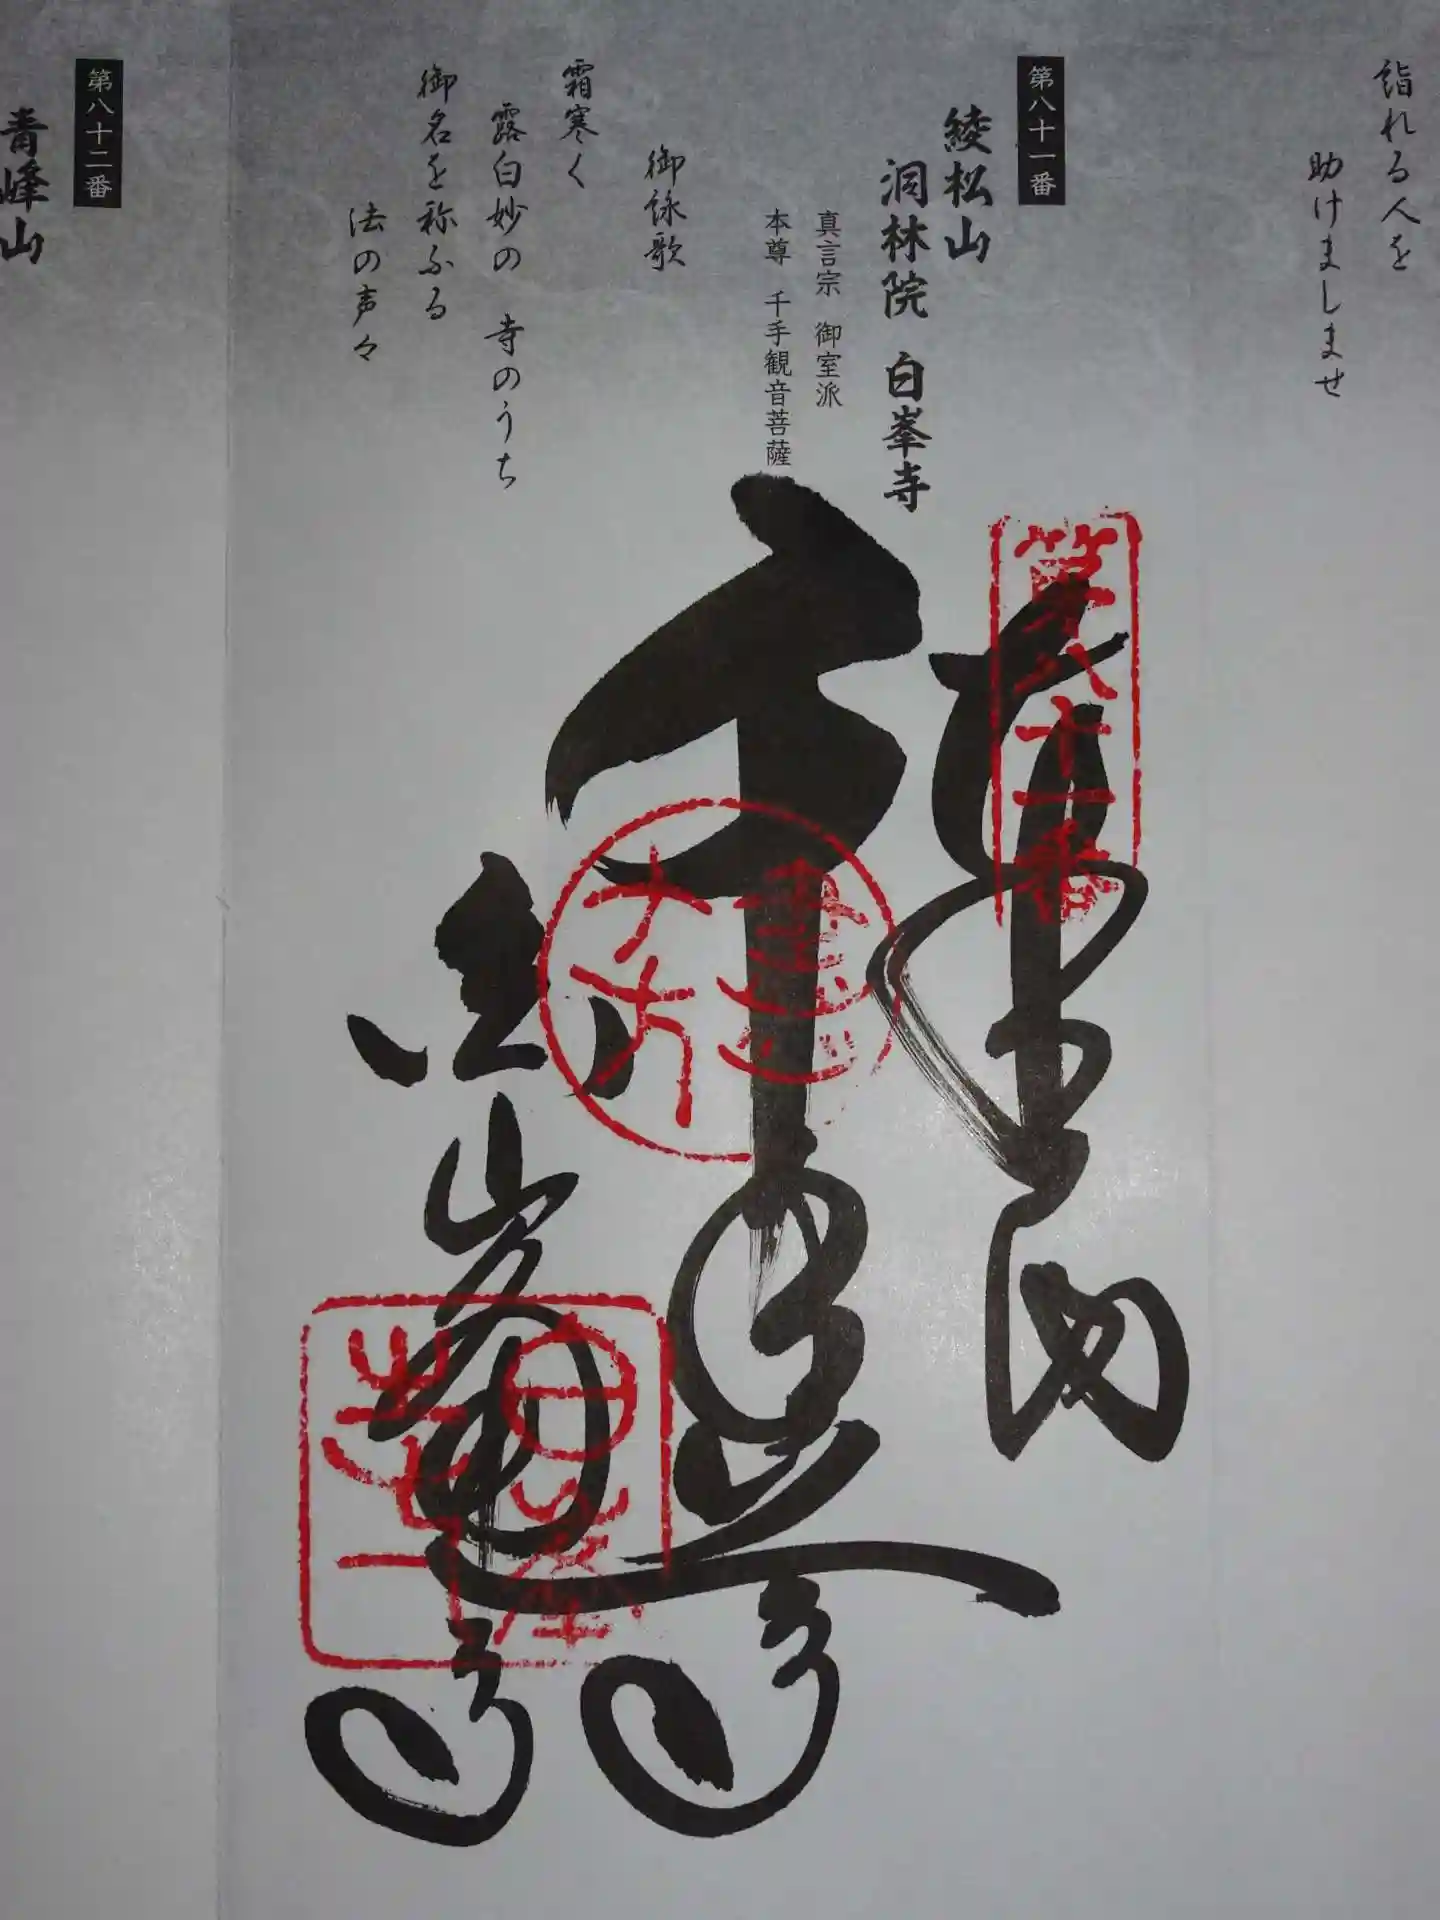 詣れる人を
助けましませ
第八十一番
綾松山
洞林院 白峯寺
真言宗 御室派
本尊 千手観音菩薩
御詠歌
霜寒く
露白妙の 寺のうち
御名を称ふる
法の声々
第八十一番
奉納
千手尊
白峯寺
第八十二番
青峰山